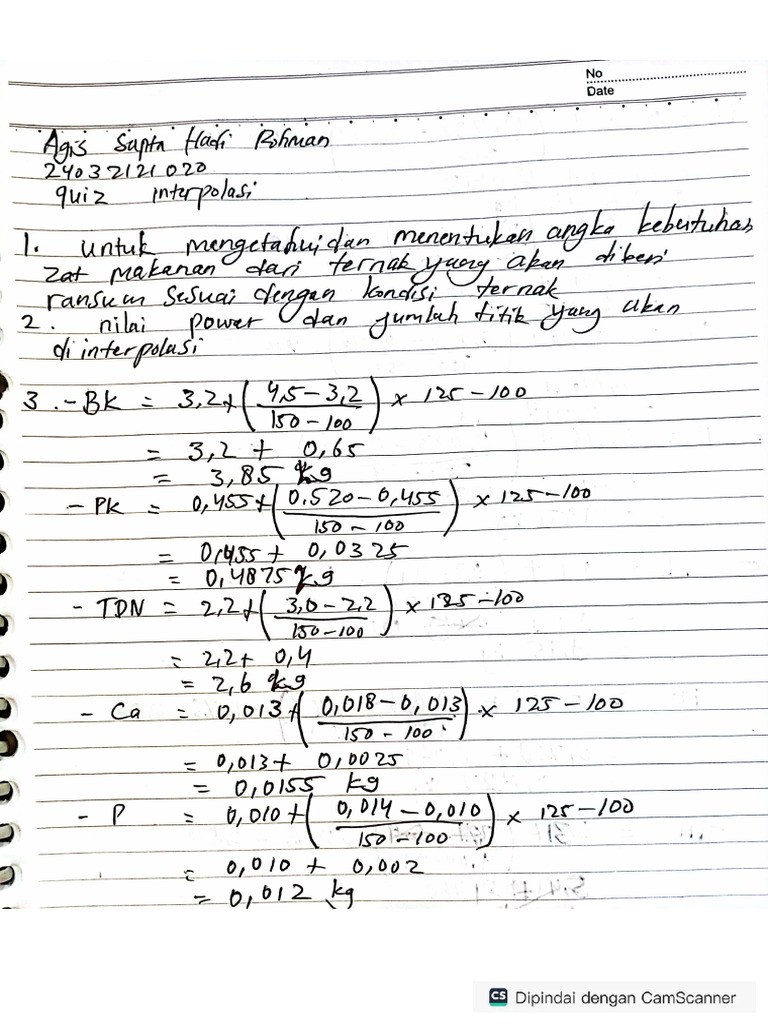 No
Date
Agis Sapta Hadi Rohman
24032121020
quiz interpolasi
1. untuk mengetahui dan menentukan angka kebutuhan
zat makanan dari ternak yang akan diberi
ransum sesuai dengan kondisi ternak
2. nilai power dan jumlah titik yang akan
di interpolasi
3. - BK = 3,2 + (4,5 - 3,2 / 150 - 100) × 125 - 100
= 3,2 + 0,65
= 3,85 kg
- PK = 0,455 + (0.520 - 0,455 / 150 - 100) × 125 - 100
= 0,455 + 0,0325
= 0,4875 kg
- TDN = 2,2 + (3,0 - 2,2 / 150 - 100) × 125 - 100
= 2,2 + 0,4
= 2,6 kg
- Ca = 0,013 + (0,018 - 0,013 / 150 - 100) × 125 - 100
= 0,013 + 0,0025
= 0,0155 kg
- P = 0,010 + (0,014 - 0,010 / 150 - 100) × 125 - 100
= 0,010 + 0,002
= 0,012 kg
CS Dipindai dengan CamScanner